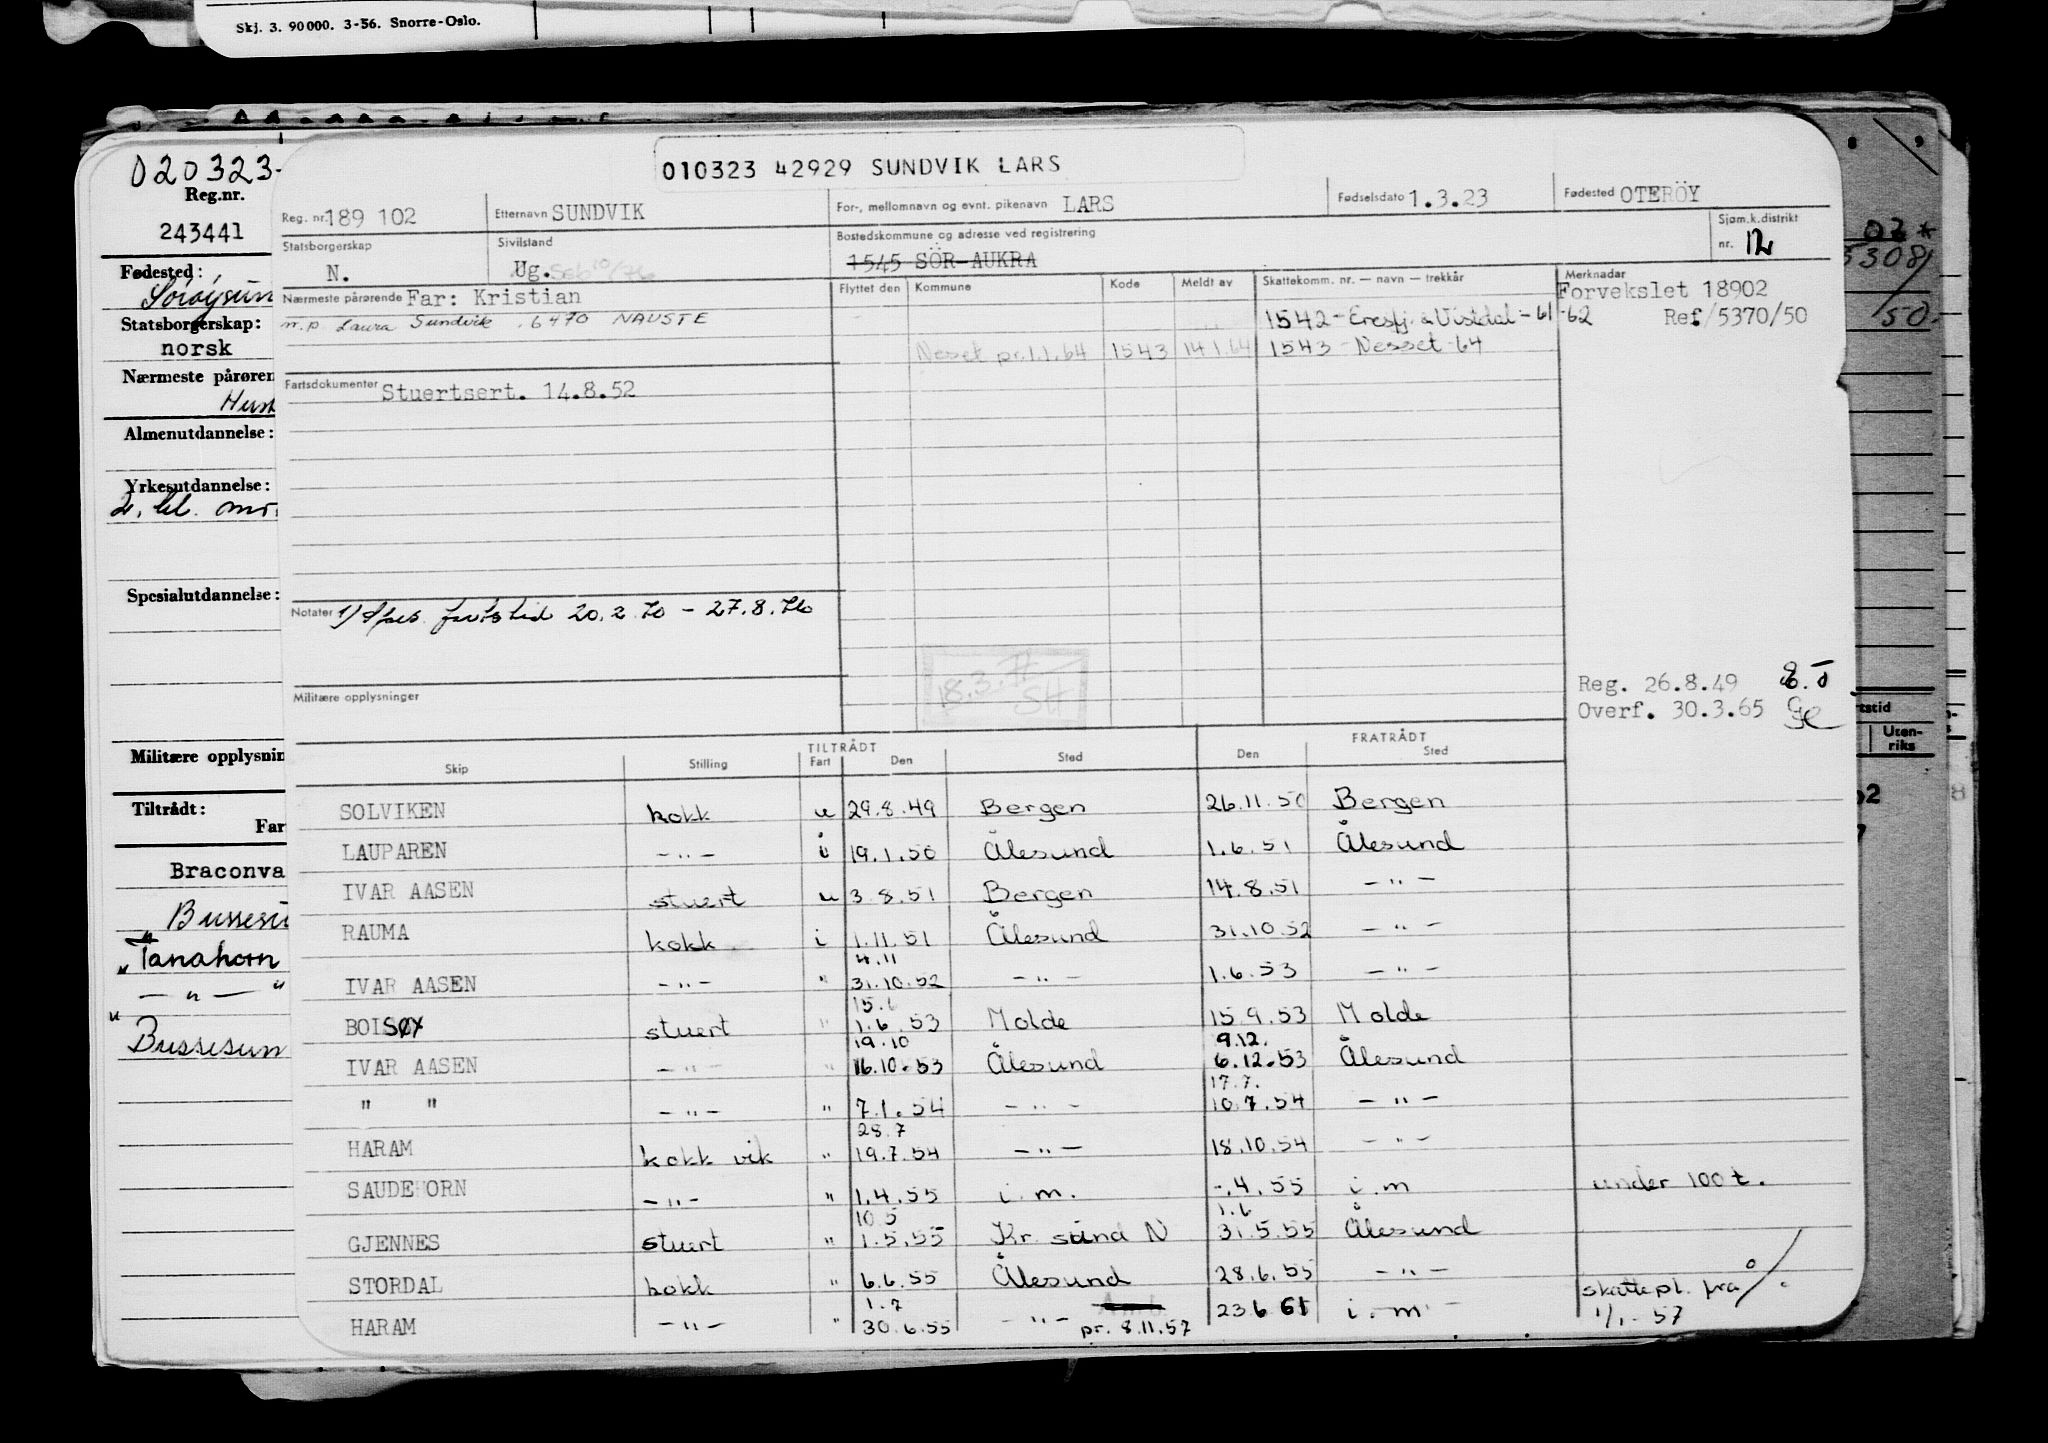 Skj. 3. 90000. 3-56. Snorre-Oslo.
020323-
Reg.nr.
243441
Fødested:
Statsborgerskap:
norsk
Nærmeste pårøren
Almenutdannelse:
Yrkesutdannelse:
Spesialutdannelse:
Militære opplysnin
Tiltrådt:
Far
Braconva
Tanahorn
— " — "
Bussesun
010323 42929 SUNDVIK LARS
Reg. nr. 189 102 Etternavn SUNDVIK For-, mellomnavn og evnt. pikenavn LARS Fødselsdato 1.3.23 Fødested OTERÖY
Statsborgerskap N. Sivilstand Ug. Bostedskommune og adresse ved registrering 1545 SÖR-AUKRA Sjøm.k.distrikt nr. 12
Nærmeste pårørende Far: Kristian Flyttet den Kommune Kode Meldt av Skattekomm. nr. — navn — trekkår Merknadar
Forvekslet 18902
m.p Laura Sundvik . 6470 NAUSTE 1542 - Eresfj. & Vistdal - 61-62 Ref/5370/50
Neset pr.1.1.64 1543 14.1.64 1543 - Nesset - 64
Fartsdokumenter Stuertsert. 14.8.52
Notater 1) fartstid 20.2.70 - 27.8.76
Militære opplysninger
Reg. 26.8.49
Overf. 30.3.65
TILTRÅDT FRATRÅDT
Skip Stilling Fart Den Sted Den Sted
SOLVIKEN kokk u 29.8.49 Bergen 26.11.50 Bergen
LAUPAREN — " — i 19.1.50 Ålesund 1.6.51 Ålesund
IVAR AASEN stuert u 3.8.51 Bergen 14.8.51 — " —
RAUMA kokk i 1.11.51 Ålesund 31.10.52 — " —
4.11
IVAR AASEN — " — " 31.10.52 — " — 1.6.53 — " —
BOISØY stuert " 1.6.53 Molde 15.9.53 Molde
19.10 9.12.
IVAR AASEN — " — " 16.10.53 Ålesund 6.12.53 Ålesund
17.7.
" " — " — " 7.1.54 — " — 10.7.54 — " —
28.7
HARAM kokk vik " 19.7.54 — " — 18.10.54 — " —
SAUDEHORN — " — " 1.4.55 i.m. -.4.55 i.m under 100 t.
10.5 1.6
GJENNES stuert " 1.5.55 Kr. sund N 31.5.55 Ålesund
STORDAL kokk " 6.6.55 Ålesund 28.6.55 — " — skattepl. frå
1.7
HARAM — " — " 30.6.55 — " — pr. 8.11.57 23 6 61 i.m 1/1-57
Uten-
riks